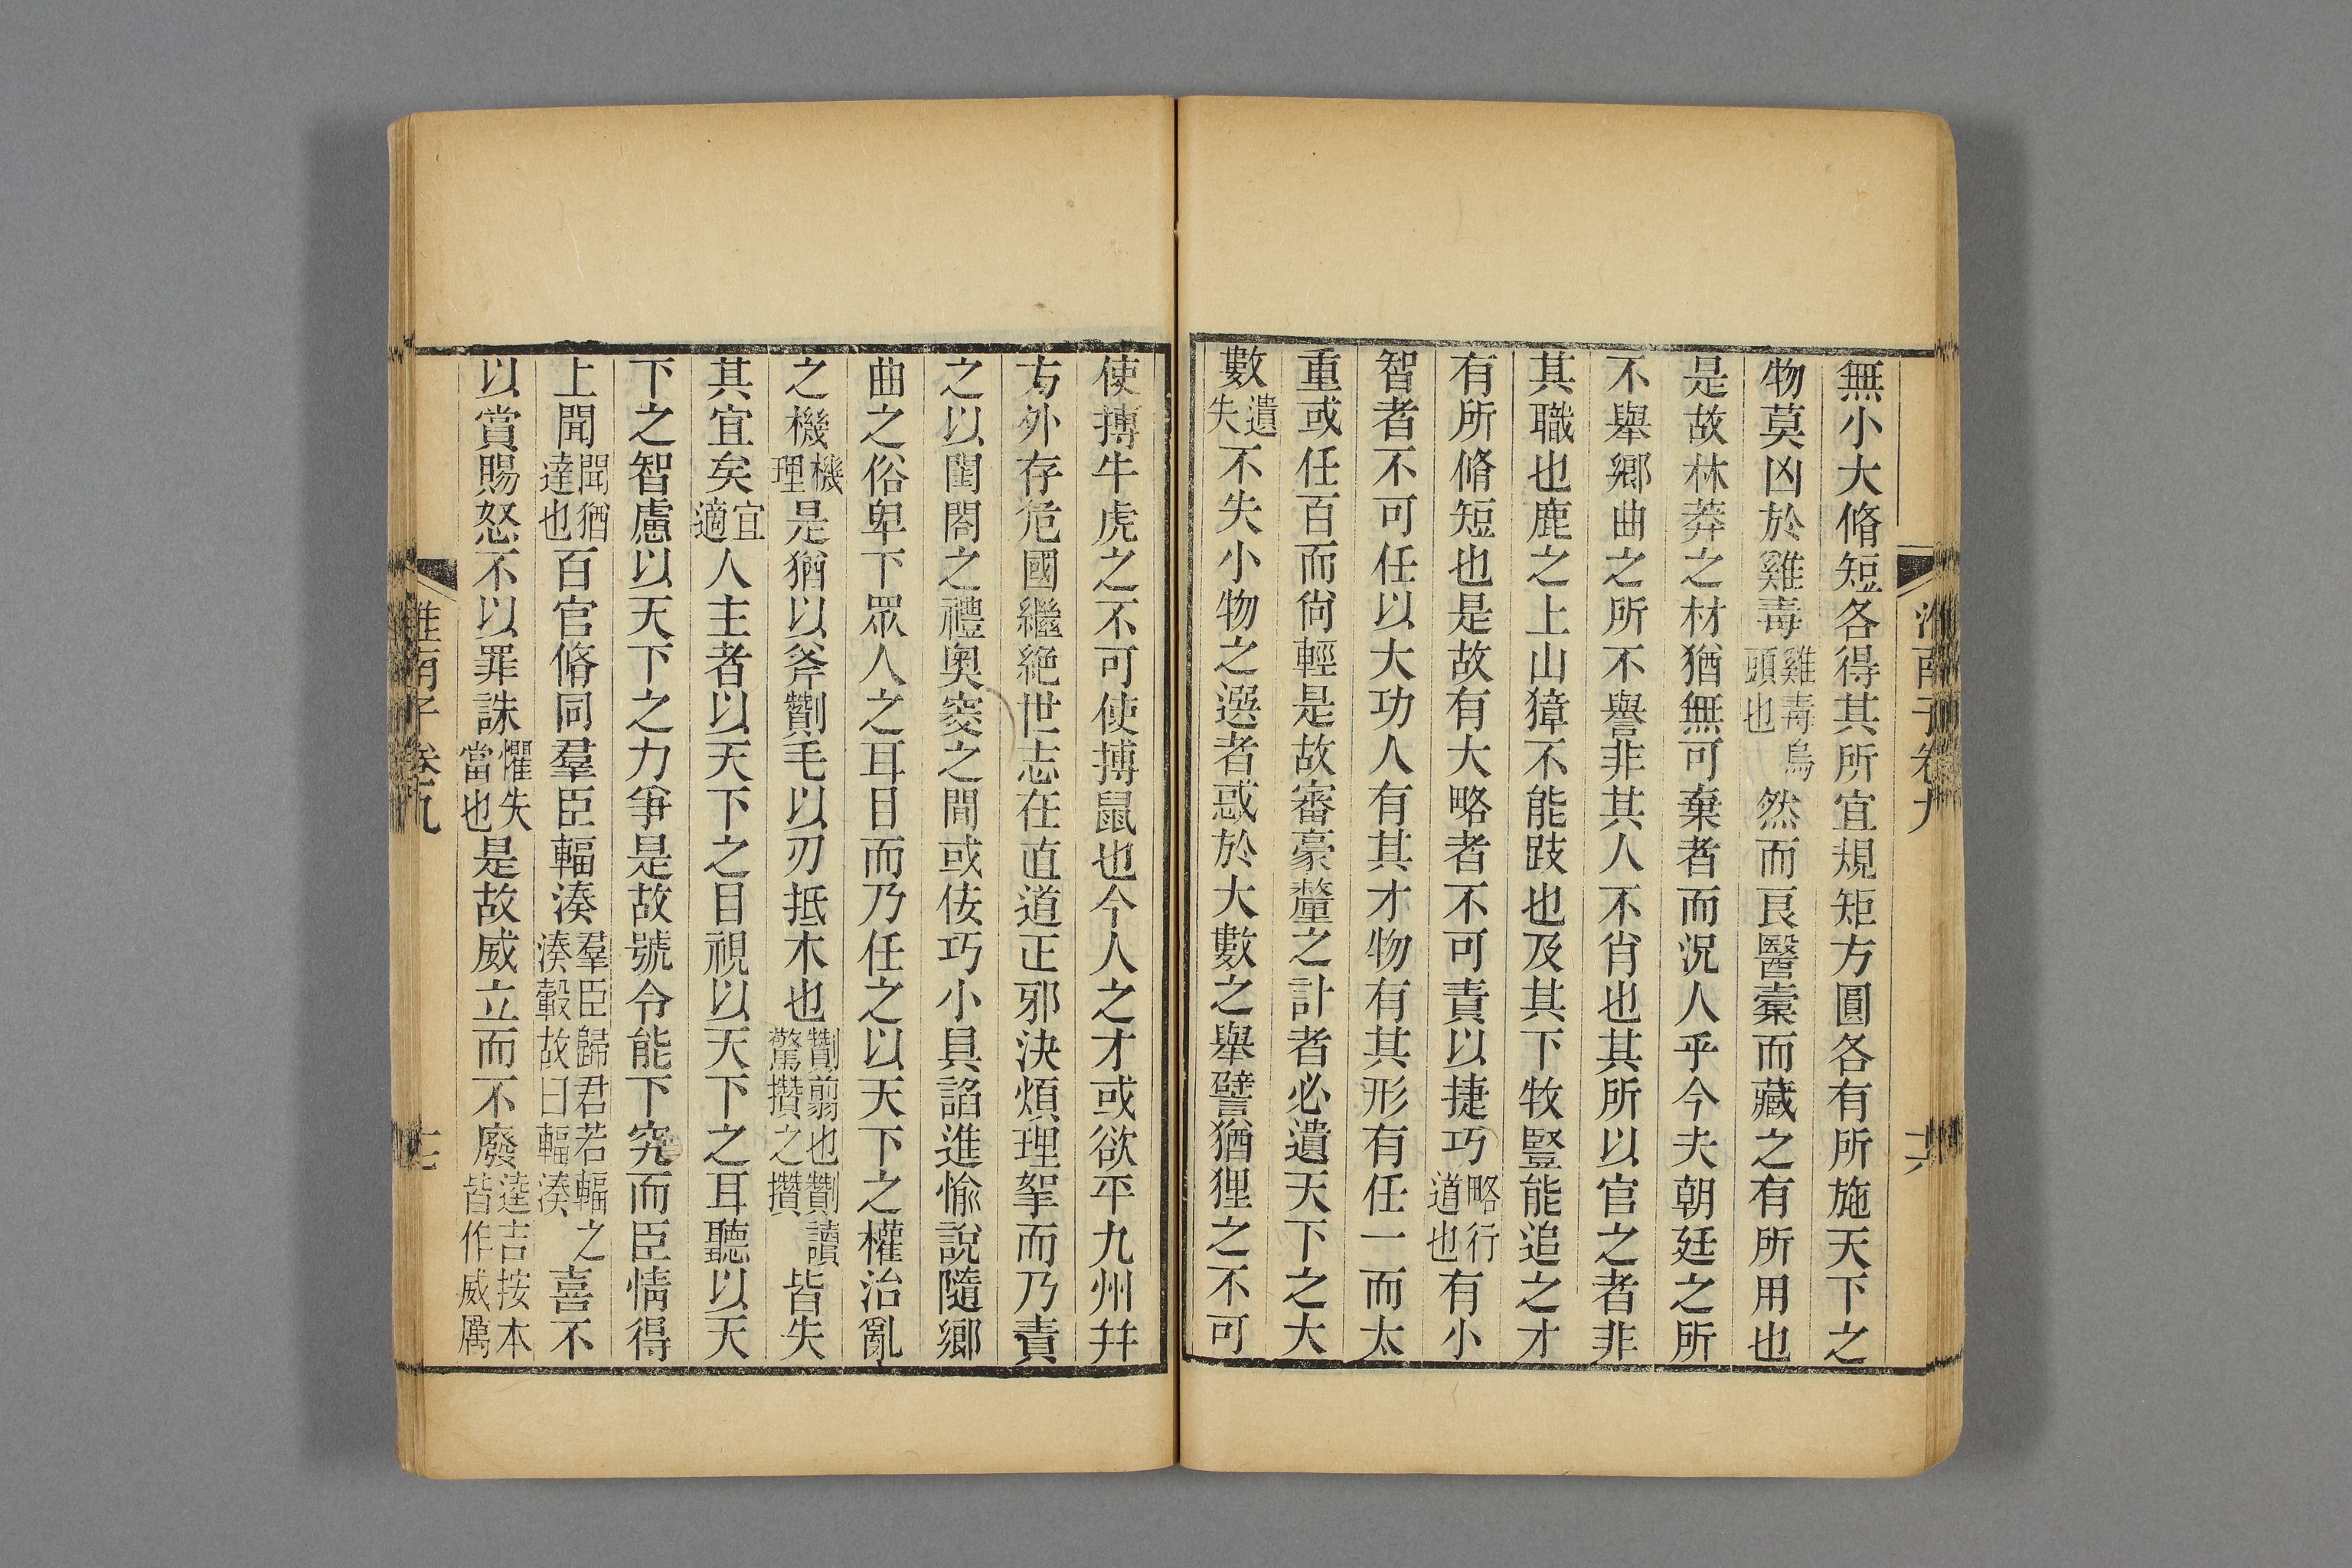 無小大脩短各得其所宜規矩方圓各有所施天下之
物莫凶於雞毒雞毒烏頭也然而良醫橐而藏之有所用也
是故林莽之材猶無可棄者而況人乎今夫朝廷之所
不舉鄉曲之所不譽非其人不肖也其所以官之者非
其職也鹿之上山獐不能跂也及其下牧豎能追之才
有所脩短也是故有大略者不可責以捷巧略行道也有小
智者不可任以大功人有其才物有其形有任一而太
重或任百而尙輕是故審豪釐之計者必遺天下之大
數遺失不失小物之選者惑於大數之舉譬猶狸之不可
使搏牛虎之不可使搏鼠也今人之才或欲平九州幷
方外存危國繼絶世志在直道正邪決煩理挐而乃責
之以閨閤之禮奥窔之間或佞巧小具諂進愉說隨鄉
曲之俗卑下眾人之耳目而乃任之以天下之權治亂
之機機理是猶以斧劗毛以刃抵木也劗翦也劗讀驚攢之攢皆失
其宜矣宜適人主者以天下之目視以天下之耳聽以天
下之智慮以天下之力爭是故號令能下究而臣情得
上聞聞猶達也百官脩同羣臣輻湊羣臣歸君若輻之湊轂故曰輻湊喜不
以賞賜怒不以罪誅懼失當也是故威立而不廢逵吉按本皆作威厲
淮南子卷九